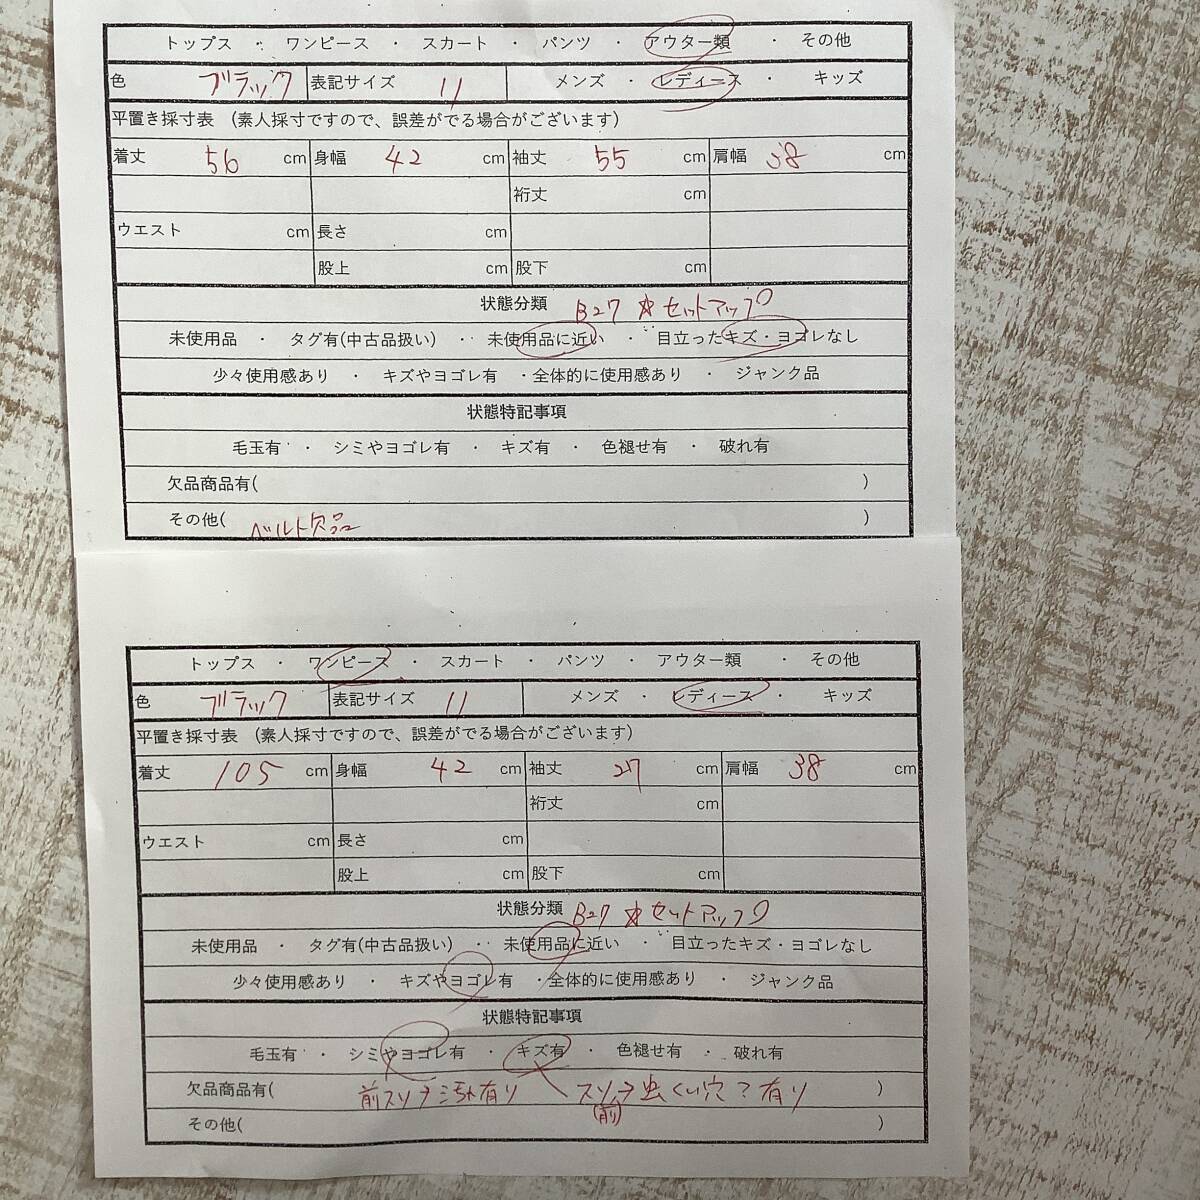 トップス ・ ワンピース ・ スカート ・ パンツ ・ アウター類 ・ その他
色 ブラック 表記サイズ 11 メンズ ・ レディース ・ キッズ
平置き採寸表 (素人採寸ですので、誤差がでる場合がございます)
着丈 56 cm 身幅 42 cm 袖丈 55 cm 肩幅 38 cm
裄丈 cm
ウエスト cm 長さ cm
股上 cm 股下 cm
状態分類 B27 ☆セットアップ
未使用品 ・ タグ有(中古品扱い) ・ 未使用品に近い ・ 目立ったキズ・ヨゴレなし
少々使用感あり ・ キズやヨゴレ有 ・全体的に使用感あり ・ ジャンク品
状態特記事項
毛玉有 ・ シミやヨゴレ有 ・ キズ有 ・ 色褪せ有 ・ 破れ有
欠品商品有( )
その他( ベルト欠品 )
トップス ・ ワンピース ・ スカート ・ パンツ ・ アウター類 ・ その他
色 ブラック 表記サイズ 11 メンズ ・ レディース ・ キッズ
平置き採寸表 (素人採寸ですので、誤差がでる場合がございます)
着丈 105 cm 身幅 42 cm 袖丈 27 cm 肩幅 38 cm
裄丈 cm
ウエスト cm 長さ cm
股上 cm 股下 cm
状態分類 B27 ☆セットアップ
未使用品 ・ タグ有(中古品扱い) ・ 未使用品に近い ・ 目立ったキズ・ヨゴレなし
少々使用感あり ・ キズやヨゴレ有 ・全体的に使用感あり ・ ジャンク品
状態特記事項
毛玉有 ・ シミやヨゴレ有 ・ キズ有 ・ 色褪せ有 ・ 破れ有
欠品商品有( 前スソ→汚れ有り スソ→虫くい穴？有り )
(前)
その他( )